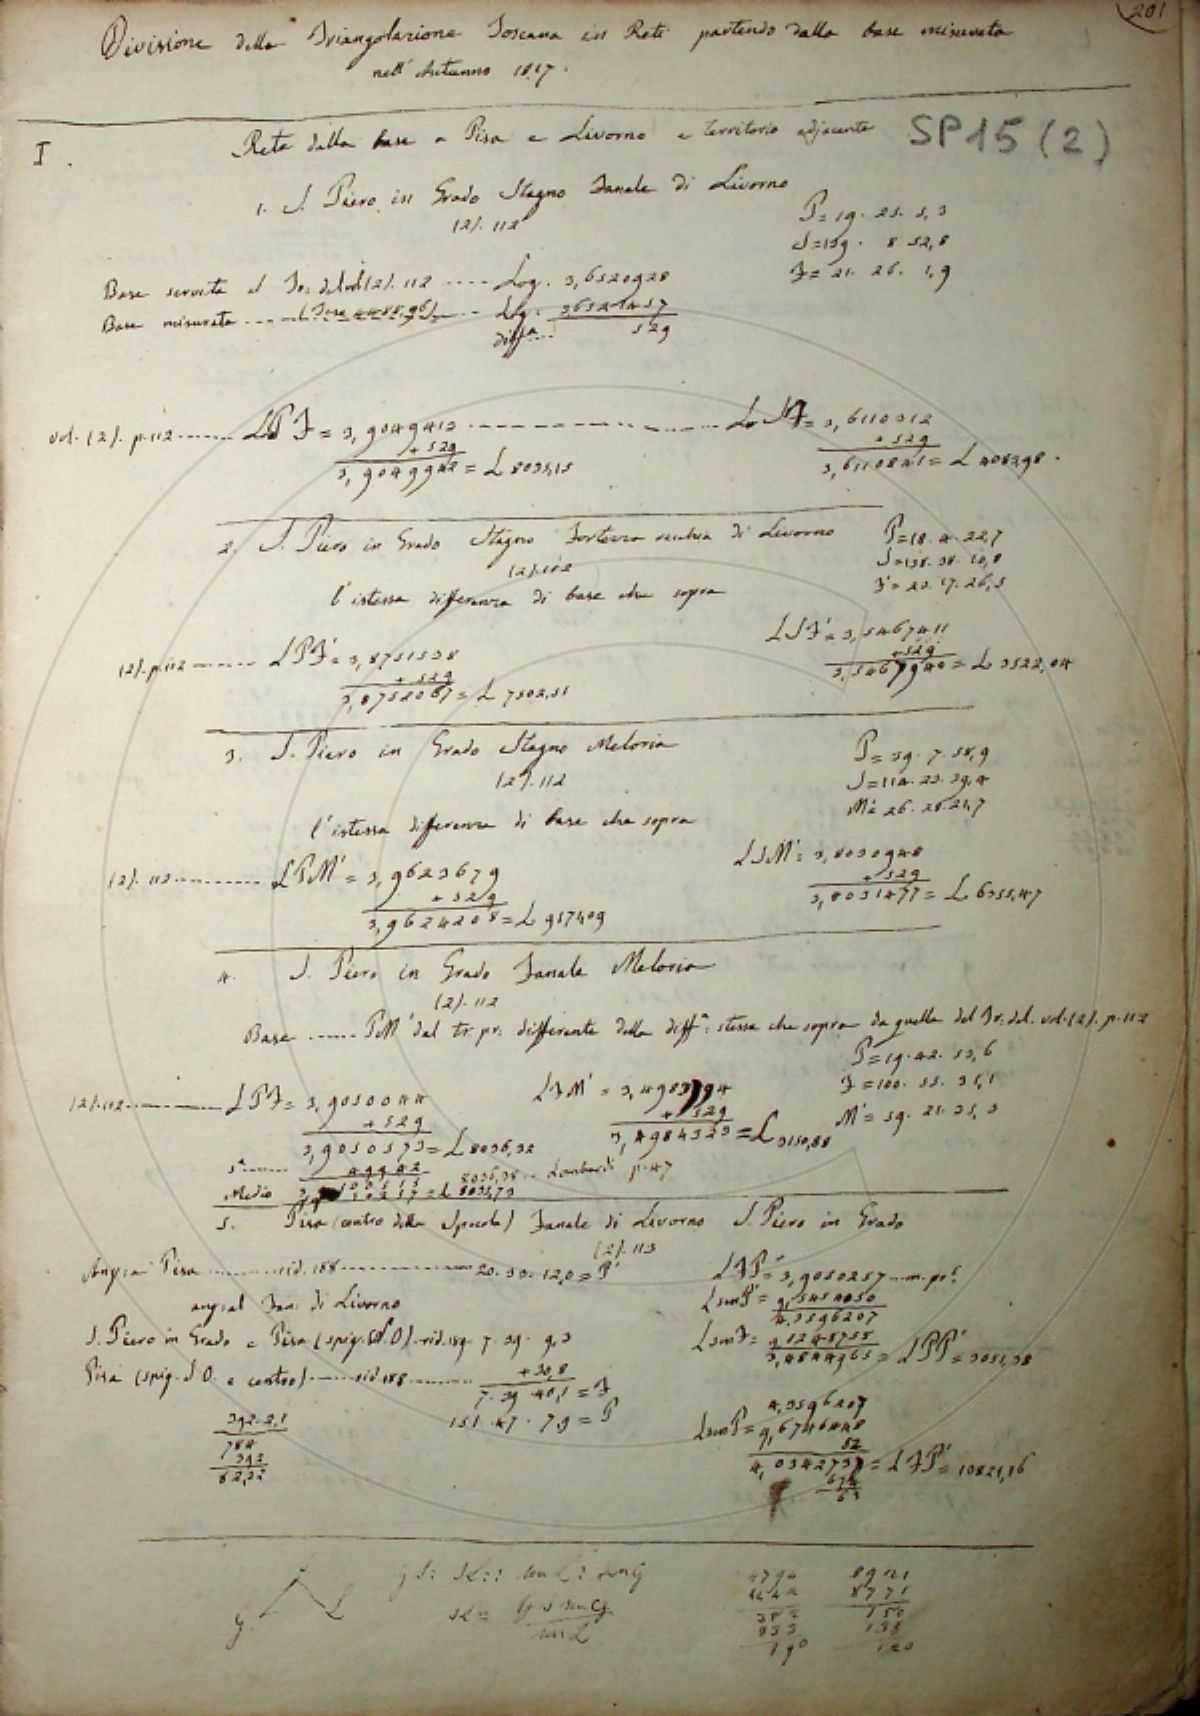 201
Divisione della Triangolazione Toscana in Reti partendo dalla base misurata
nell'Autunno 1817.
SP15 (2)
I.
Rete dalla base a Pisa e Livorno e territorio adjacente
1. S. Piero in Grado Stagno Fanale di Livorno
(2). 112
P = 19. 25. 5,3
S = 139. 8 52,8
F = 21. 26. 1,9
Base servita al Tr. del vol. (2). 112 ---- Log. 3,6520928
Base misurata ---- Lg. 3,6521457
diff.ª ... 529
vol. (2). p. 112 ------ LPF = 3,9049413 ------ LSF = 3,6110312
+ 529 + 529
3,9049942 = L 8035,15 3,6110841 = L 4083,98.
2. S. Piero in Grado Stagno Fortezza vecchia di Livorno
(2). 112
P = 18. 4. 22,7
S = 138. 38. 10,8
F' = 23. 17. 26,5
l'istessa differenza di base che sopra
(2). p. 112 ------ LPF' = 3,8751538 LSF' = 3,5467411
+ 529 + 529
3,8752067 = L 7502,51 3,5467940 = L 3522,04
3. S. Piero in Grado Stagno Meloria
(2). 112
P = 39. 7. 58,9
S = 114. 23. 39,4
M' = 26. 28. 21,7
l'istessa differenza di base che sopra
(2). 112 ------ LPM' = 3,9623679 LSM' = 3,8030948
+ 529 + 529
3,9624208 = L 9171,09 3,8031477 = L 6355,47
4. S. Piero in Grado Fanale Meloria
(2). 112
Base ------ PM' dal tr. pr. differente della diff.ª stessa che sopra da quella del Tr. del. vol. (2). p. 112
P = 19. 42. 53,6
F = 100. 55. 31,1
M' = 59. 21. 35,3
(2). 112 ------ LPF = 3,9050044 LFM' = 3,4983794
+ 529 + 529
3,9050573 = L 8036,32 3,4984323 = L 3150,88
Lombardi p. 47
Medio
5. Pisa (centro della Specola) Fanale di Livorno S. Piero in Grado
(2). 113
Ang. a Pisa ------ rid. 188 ------ 20. 33. 12,0 = P'
ang. al Fan. di Livorno
S. Piero in Grado e Pisa (spig. S.O.) rid. 189 7. 39. 9,3
Pisa (spig. S.O. e centro) ------ rid. 188 ------ + 30,8
7. 39. 40,1 = F
151. 47. 7,9 = P
LFP = 3,9050257 ... m. pr.
L sin P' = 9,5454050
4,3596207
L sin F = 9,1248758
3,4844965 = LPP' = 3051,38
4,3596207
L sin P = 9,6746448
82
4,0342737 = LFP' = 10821,16
674
63
392. 2,1
784
392
82,32